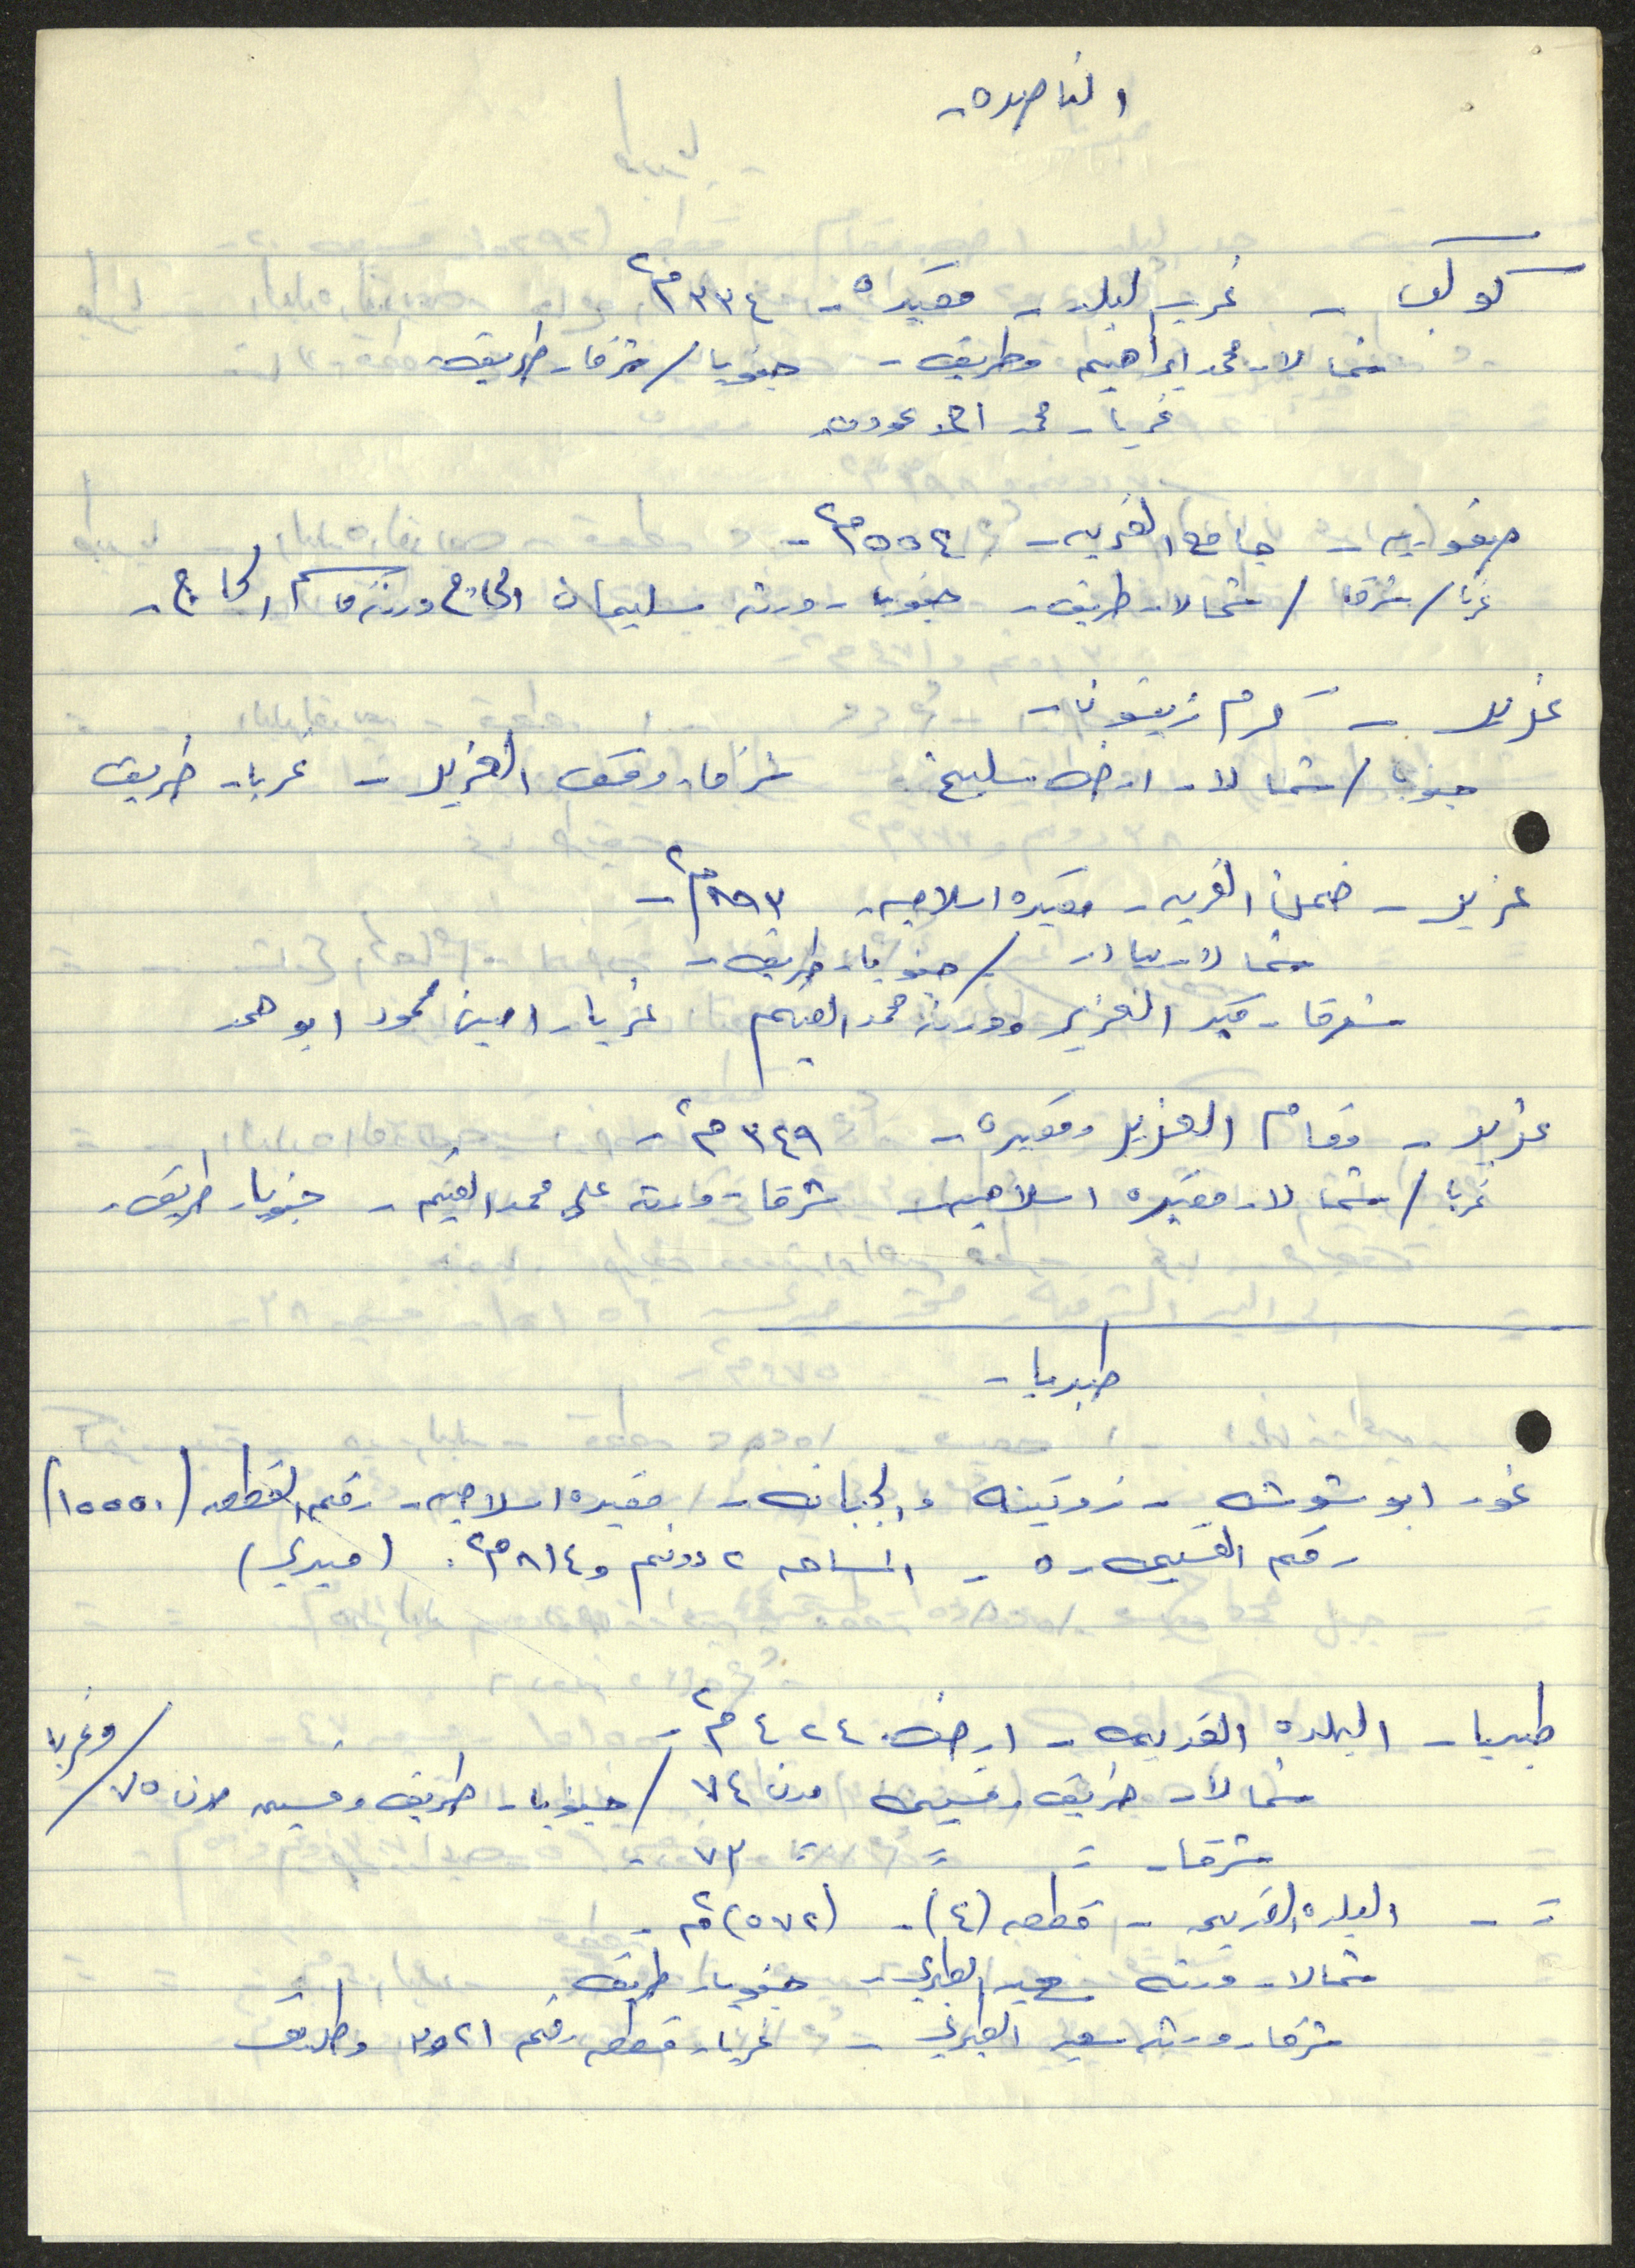 الناصره -
كوكب - غرب البلد - مقبره - ٣٣٤ م٢
شمالا - محمد ابراهيم وطريق - جنوبا / شرقا - طريق
غربا - محمد احمد عوده
صفوريه - جامع القريه - ٥٥٤ م٢ -
غربا / شرقا / شمالا - طريق - جنوبا - ورثه سليمان الحاج ورثه قاسم الحاج -
عزير - كرم زيتون -
جنوبا / شمالا - ارض سليخ - شرقا - وقف العزير - غربا - طريق
عزير - ضمن القريه - مقبره اسلاميه - ٨٩٣ م٢ -
شمالا - بيادر / جنوبا - طريق -
شرقا - قبر العزير وورثة محمد الغنيم غربا - امين محمود ابو حمد
عزير - مقام العزير ومقبره - ٣٤٩ م٢ -
غربا / شمالا - مقبره اسلاميه - شرقا - ورثه علي محمد الغنيم - جنوبا - طريق -
طبريا -
غور ابو شوشه - زوتينه والجبانه - مقبره اسلاميه - رقم القطعه (١٥٥٥٠)
رقم القسيمه - ٥ - المساحه ٢ دونم و ٨١٤ م٢ . (ميري)
طبريا - البلده القديمه - ارض ٤٢٤ م٢ -
شمالا - طريق وقسيمه مدن ٧٤ / جنوبا - طريق وقسيمه مدن ٧٥ / وغربا
شرقا - = = = ٧٣ -
= - البلده القديمه - قطعه (٤) - (٥٧٢) م٢ -
شمالا - ورثه سعيد الطبري - جنوبا - طريق
شرقا - ورثه سعيد الطبري - غربا - قطعه رقم ٢١ وطريق